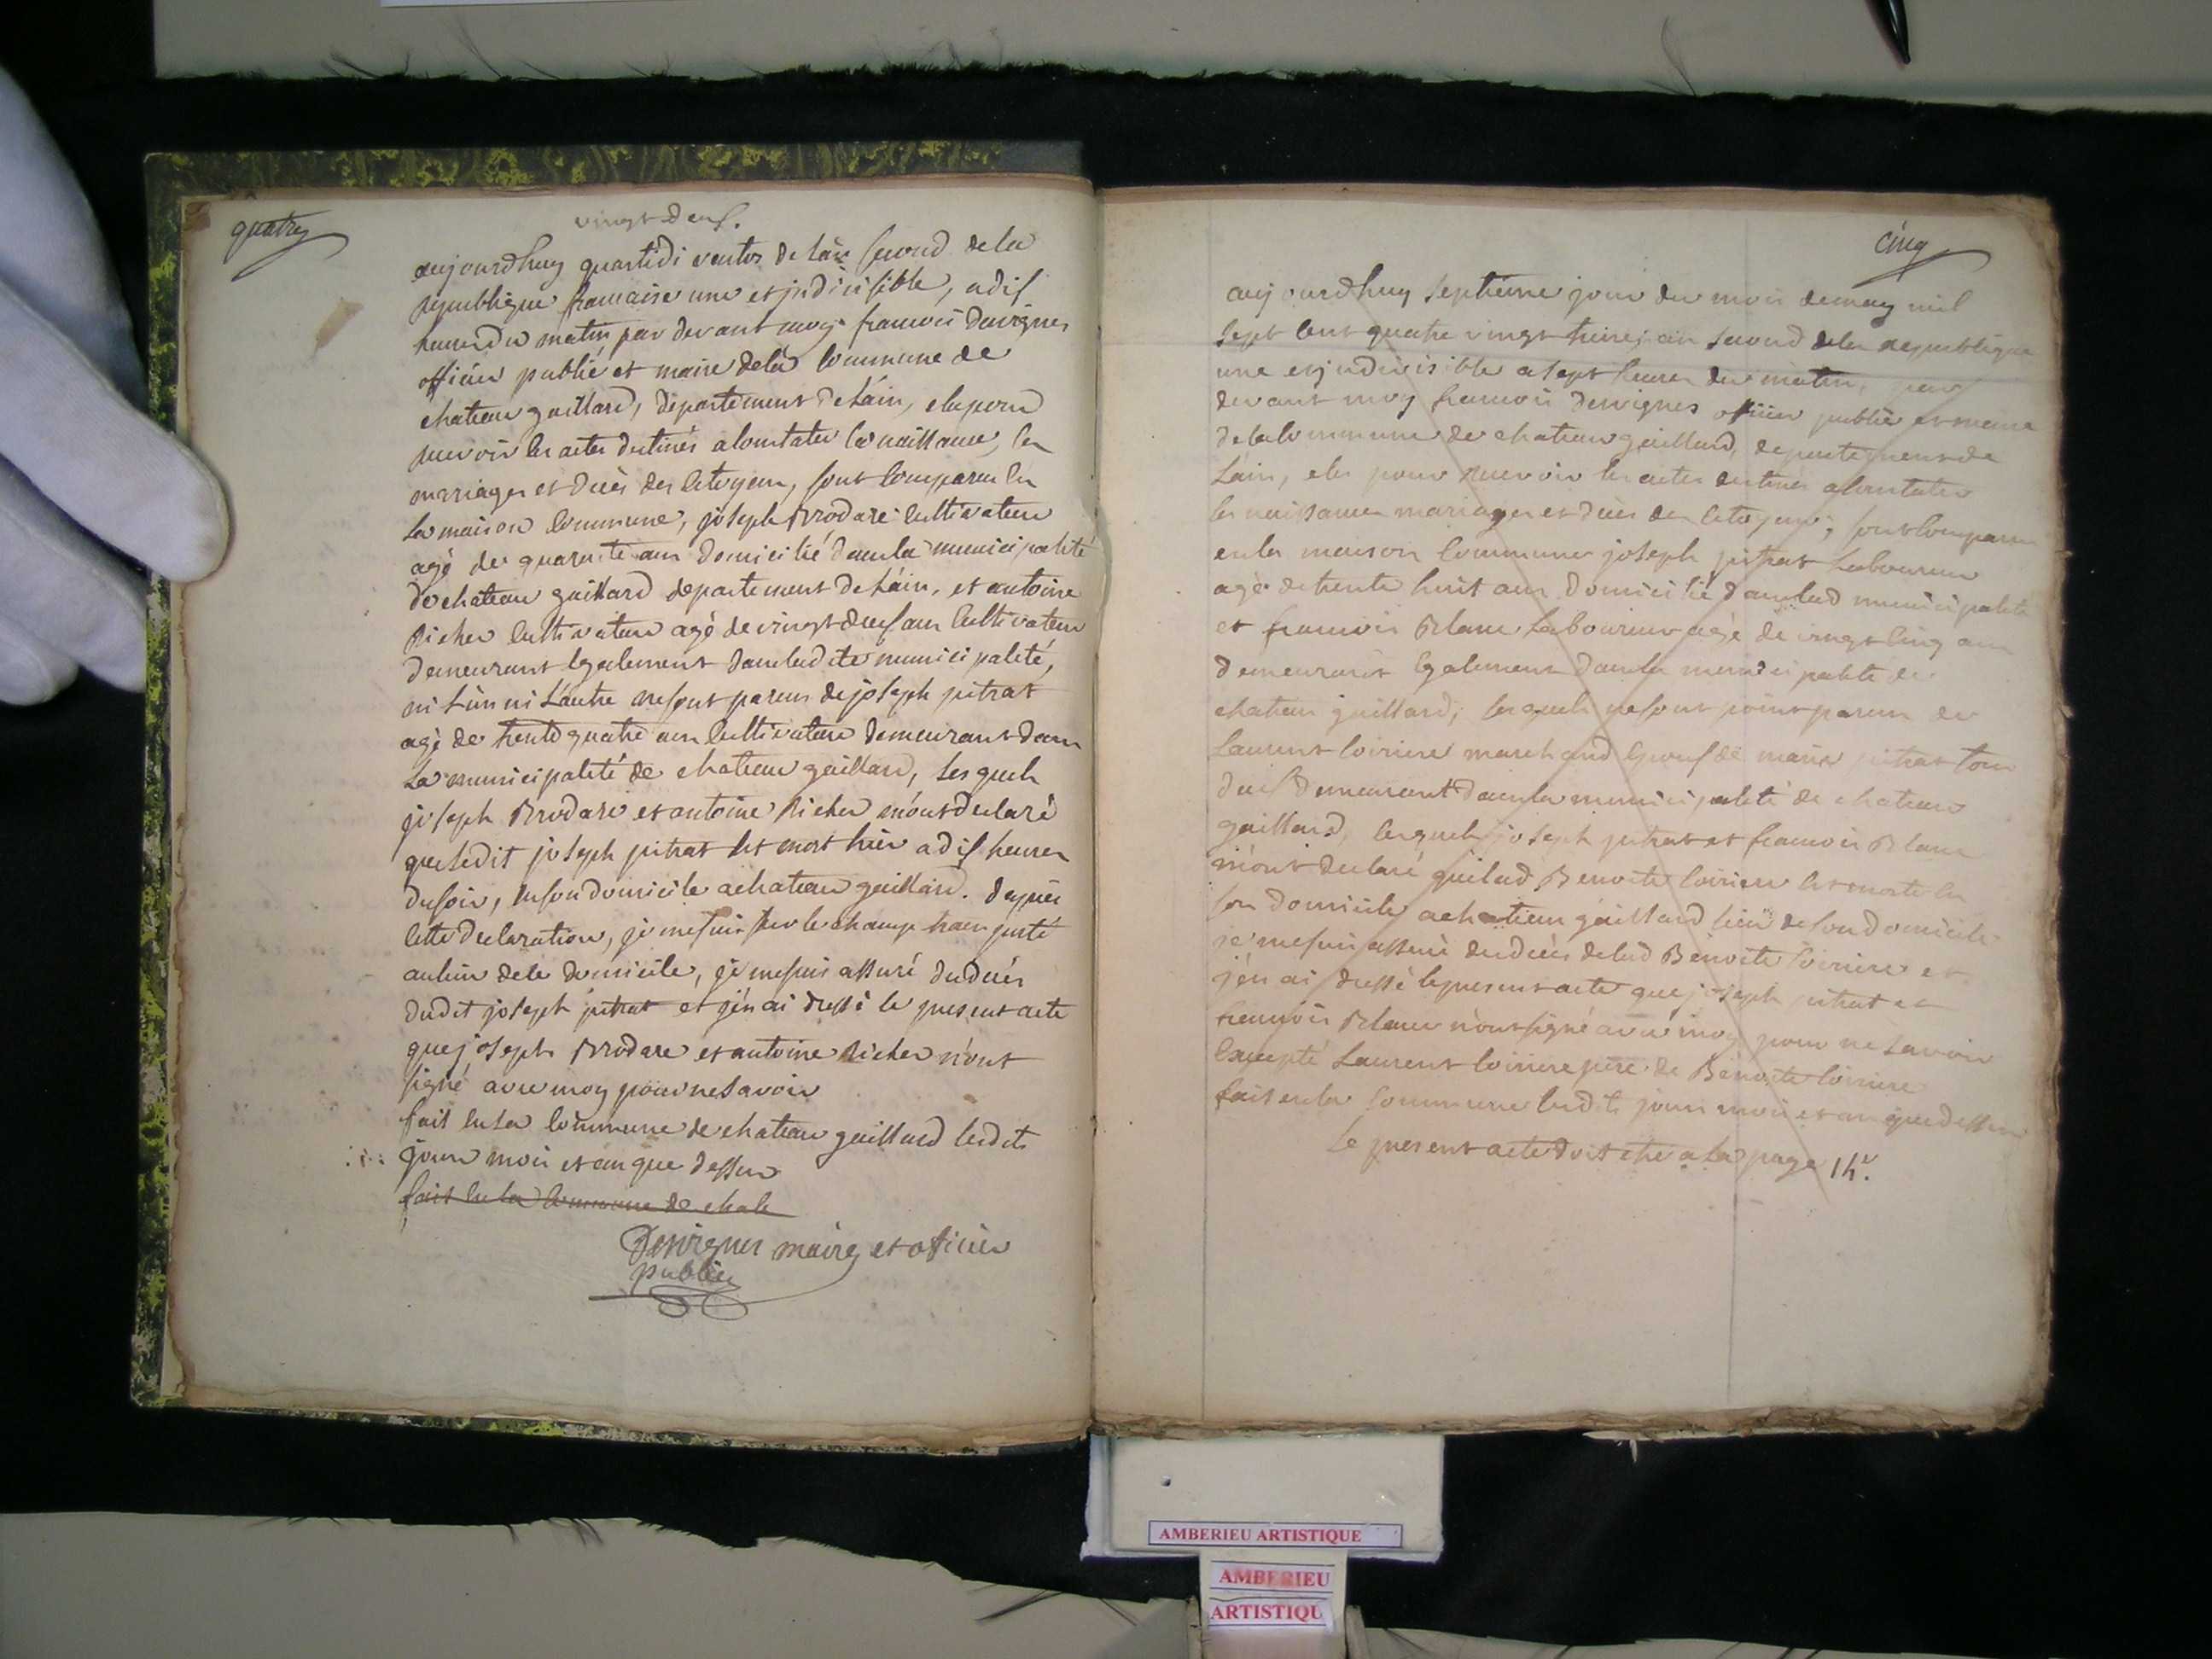 quatre
vingt deux.
aujourdhuy quartidi ventos de lan second de la
republique francaise une et indivisible, a dix
heures du matin par devant moy francois desvignes
officier publié et maire de la commune de
chateau gaillard, departement de Láin, elu pour
recevoir les actes destinés a constater la naissance, les
mariages et décès des citoyens, sont comparus en
la maison commune, joseph Brodare cultivateur
agé de quarente ans domicilié dans la municipalité
de chateau gaillard departement de Láin, et antoine
Richer cultivateur agé de vingt deux ans cultivateur
demeurant egalement dans ladite municipalité,
ni L'un ni L'autre ne sont parens de joseph pitrat
agé de trente quatre ans cultivateur demeurant dans
La municipalité de chateau gaillard, Lesquels
joseph Brodare et antoine Richer m'ont declaré
que Ledit joseph pitrat est mort hier a dix heures
du soir, en son domicile a chateau gaillard. d'apres
cette declaration, je me suis sur le champ transporté
au lieu de le domicile, je me suis assuré du décès
dudit joseph pitrat et j'en ai dressé le present acte
que joseph Brodare et antoine Richer n'ont
signé avec moy pour ne savoir
fait en La commune de chateau gaillard lesdits
jour mois et an que dessus
fait en la commune de chate
Desvignes maire et officier
publié
cinq
aujourdhuy septieme jour du mois de may mil
sept cent quatre vingt treize, an second de la republique
une et indivisible a sept heures du matin, par
devant moy francois desvignes officier publié et maire
de la commune de chateau gaillard, departement de
Láin, elu pour recevoir les actes destinés a constater
les naissances mariages et décès des citoyens; sont comparus
en la maison commune joseph pitrat Laboureur
agé de trente huit ans domicilié dans lad municipalité
et francois Blanc Laboureur agé de vingt cinq ans
demeurant egalement dans la municipalité de
chateau gaillard; lesquels ne sont point parens de
Laurent loiriere marchand epoux de marie pitrat tous
deux demeurant dans la municipalité de chateau
gaillard, lesquels joseph pitrat et francois Blanc
m'ont declaré que lad Benoite loiriere est morte en
son domicile a chateau gaillard lieu de son domicile
je me suis assuré du décès de lad Benoite loiriere et
j'en ai dressé le present acte que joseph pitrat et
francois Blanc n'ont signé avec moy pour ne savoir
Excepté Laurent loiriere pere de Benoite loiriere
fait en la commune lesdits jour mois et an que dessus
Le present acte doit etre a la page 14.
AMBERIEU ARTISTIQUE
AMBERIEU
ARTISTIQU